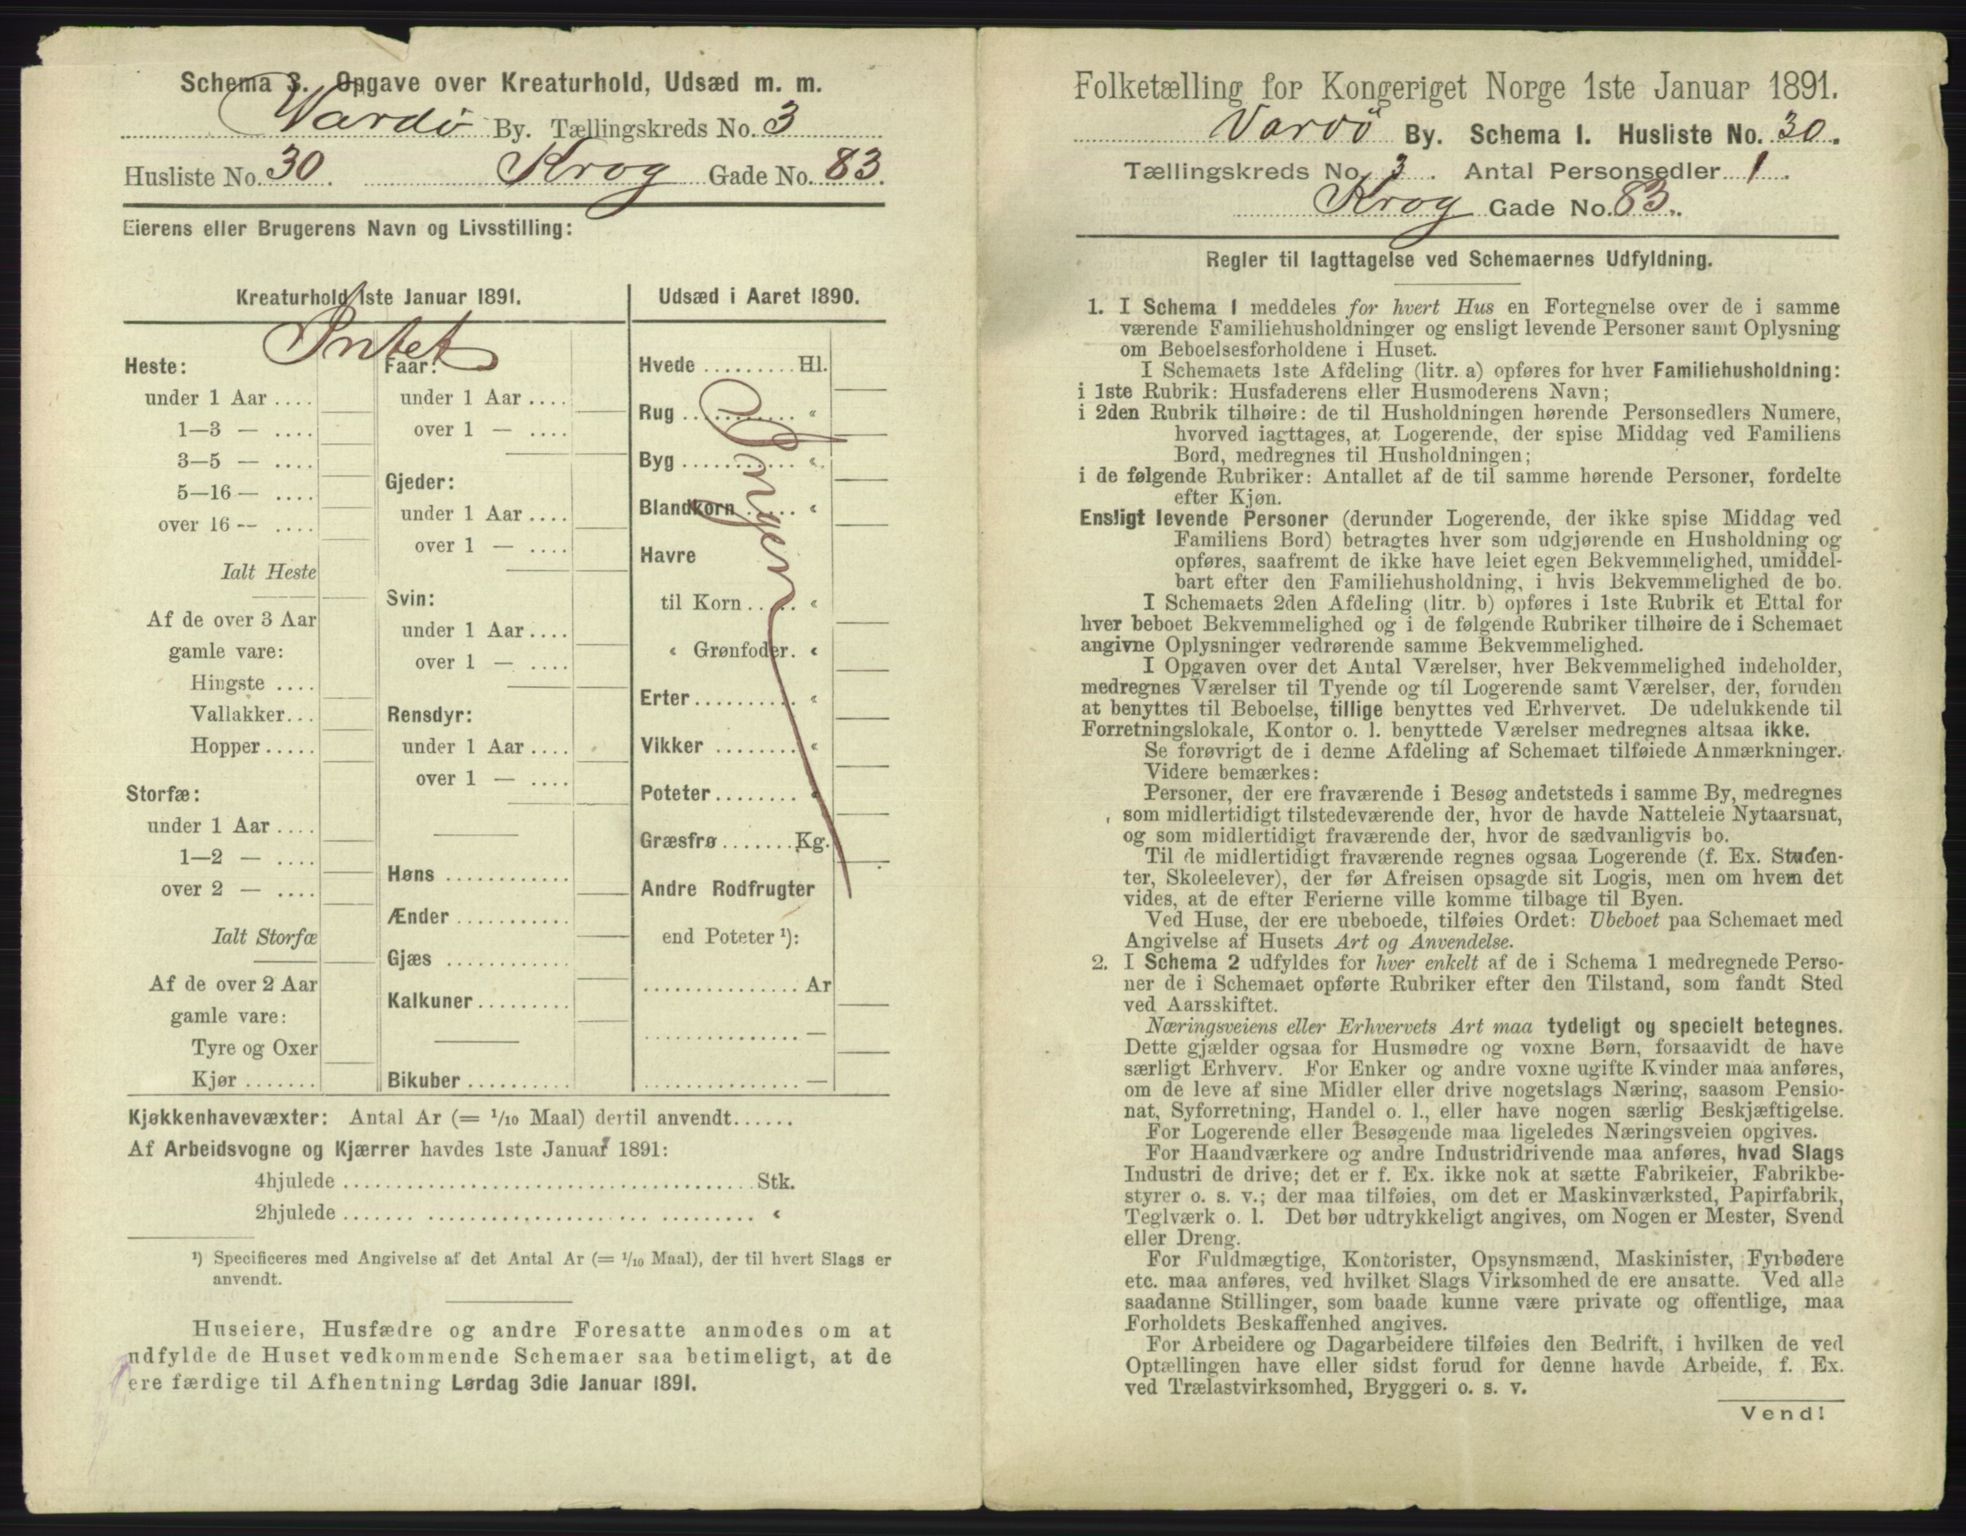 Schema 3. Opgave over Kreaturhold, Udsæd m. m.
Vardø By. Tællingskreds No. 3
Husliste No. 30. Krog Gade No. 83.
Eierens eller Brugerens Navn og Livsstilling:
Kreaturhold 1ste Januar 1891.
Intet
Heste:
under 1 Aar ....
1—3 — ....
3—5 — ....
5—16 — ....
over 16 -- ....
Ialt Heste
Af de over 3 Aar
gamle vare:
Hingste ....
Vallakker...
Hopper.....
Storfæ:
under 1 Aar ....
1—2 — ....
over 2 — ....
Ialt Storfæ
Af de over 2 Aar
gamle vare:
Tyre og Oxer
Kjør.......
Faar:
under 1 Aar....
over 1 — ....
Gjeder:
under 1 Aar....
over 1 — ....
Svin:
under 1 Aar....
over 1 — ....
Rensdyr:
under 1 Aar....
over 1 — ....
Høns ...........
Ænder ..........
Gjæs ...........
Kalkuner........
Bikuber .........
Udsæd i Aaret 1890.
Hvede ......... Hl.
Rug ........... “
Byg ........... “
Blandkorn ..... “
Havre
til Korn..... “
“ Grønfoder. “
Erter.......... “
Vikker ........ “
Poteter........ “
Græsfrø....... Kg.
Andre Rodfrugter
end Poteter ¹):
............... Ar
............... —
............... —
Kjøkkenhavevæxter: Antal Ar (= 1/10 Maal) dertil anvendt......
Af Arbeidsvogne og Kjærrer havdes 1ste Januar 1891:
4hjulede ........................................ Stk.
2hjulede ........................................ “
¹) Specificeres med Angivelse af det Antal Ar (= 1/10 Maal), der til hvert Slags er
anvendt.
Huseiere, Husfædre og andre Foresatte anmodes om at
udfylde de Huset vedkommende Schemaer saa betimeligt, at de
ere færdige til Afhentning Lørdag 3die Januar 1891.
Folketælling for Kongeriget Norge 1ste Januar 1891.
Vardø By. Schema I. Husliste No. 30.
Tællingskreds No. 3. Antal Personsedler 1.
Krog Gade No. 83.
Regler til Iagttagelse ved Schemaernes Udfyldning.
1. I Schema 1 meddeles for hvert Hus en Fortegnelse over de i samme
værende Familiehusholdninger og ensligt levende Personer samt Oplysning
om Beboelsesforholdene i Huset.
I Schemaets 1ste Afdeling (litr. a) opføres for hver Familiehusholdning:
i 1ste Rubrik: Husfaderens eller Husmoderens Navn;
i 2den Rubrik tilhøire: de til Husholdningen hørende Personsedlers Numere,
hvorved iagttages, at Logerende, der spise Middag ved Familiens
Bord, medregnes til Husholdningen;
i de følgende Rubriker: Antallet af de til samme hørende Personer, fordelte
efter Kjøn.
Ensligt levende Personer (derunder Logerende, der ikke spise Middag ved
Familiens Bord) betragtes hver som udgjørende en Husholdning og
opføres, saafremt de ikke have leiet egen Bekvemmelighed, umiddel-
bart efter den Familiehusholdning, i hvis Bekvemmelighed de bo.
I Schemaets 2den Afdeling (litr. b) opføres i 1ste Rubrik et Ettal for
hver beboet Bekvemmelighed og i de følgende Rubriker tilhøire de i Schemaet
angivne Oplysninger vedrørende samme Bekvemmelighed.
I Opgaven over det Antal Værelser, hver Bekvemmelighed indeholder,
medregnes Værelser til Tyende og til Logerende samt Værelser, der, foruden
at benyttes til Beboelse, tillige benyttes ved Erhvervet. De udelukkende til
Forretningslokale, Kontor o. l. benyttede Værelser medregnes altsaa ikke.
Se forøvrigt de i denne Afdeling af Schemaet tilføiede Anmærkninger.
Videre bemærkes:
Personer, der ere fraværende i Besøg andetsteds i samme By, medregnes
som midlertidigt tilstedeværende der, hvor de havde Natteleie Nytaarsnat,
og som midlertidigt fraværende der, hvor de sædvanligvis bo.
Til de midlertidigt fraværende regnes ogsaa Logerende (f. Ex. Studen-
ter, Skoleelever), der før Afreisen opsagde sit Logis, men om hvem det
vides, at de efter Ferierne ville komme tilbage til Byen.
Ved Huse, der ere ubeboede, tilføies Ordet: Ubeboet paa Schemaet med
Angivelse af Husets Art og Anvendelse.
2. I Schema 2 udfyldes for hver enkelt af de i Schema 1 medregnede Perso-
ner de i Schemaet opførte Rubriker efter den Tilstand, som fandt Sted
ved Aarsskiftet.
Næringsveiens eller Erhvervets Art maa tydeligt og specielt betegnes.
Dette gjælder ogsaa for Husmødre og voxne Børn, forsaavidt de have
særligt Erhverv. For Enker og andre voxne ugifte Kvinder maa anføres,
om de leve af sine Midler eller drive nogetslags Næring, saasom Pensio-
nat, Syforretning, Handel o. l., eller have nogen særlig Beskjæftigelse.
For Logerende eller Besøgende maa ligeledes Næringsveien opgives.
For Haandværkere og andre Industridrivende maa anføres, hvad Slags
Industri de drive; det er f. Ex. ikke nok at sætte Fabrikeier, Fabrikbe-
styrer o. s. v.; der maa tilføies, om det er Maskinværksted, Papirfabrik,
Teglværk o. l. Det bør udtrykkeligt angives, om Nogen er Mester, Svend
eller Dreng.
For Fuldmægtige, Kontorister, Opsynsmænd, Maskinister, Fyrbødere
etc. maa anføres, ved hvilket Slags Virksomhed de ere ansatte. Ved alle
saadanne Stillinger, som baade kunne være private og offentlige, maa
Forholdets Beskaffenhed angives.
For Arbeidere og Dagarbeidere tilføies den Bedrift, i hvilken de ved
Optællingen have eller sidst forud for denne havde Arbeide, f. Ex.
ved Trælastvirksomhed, Bryggeri o. s. v.
Vend!